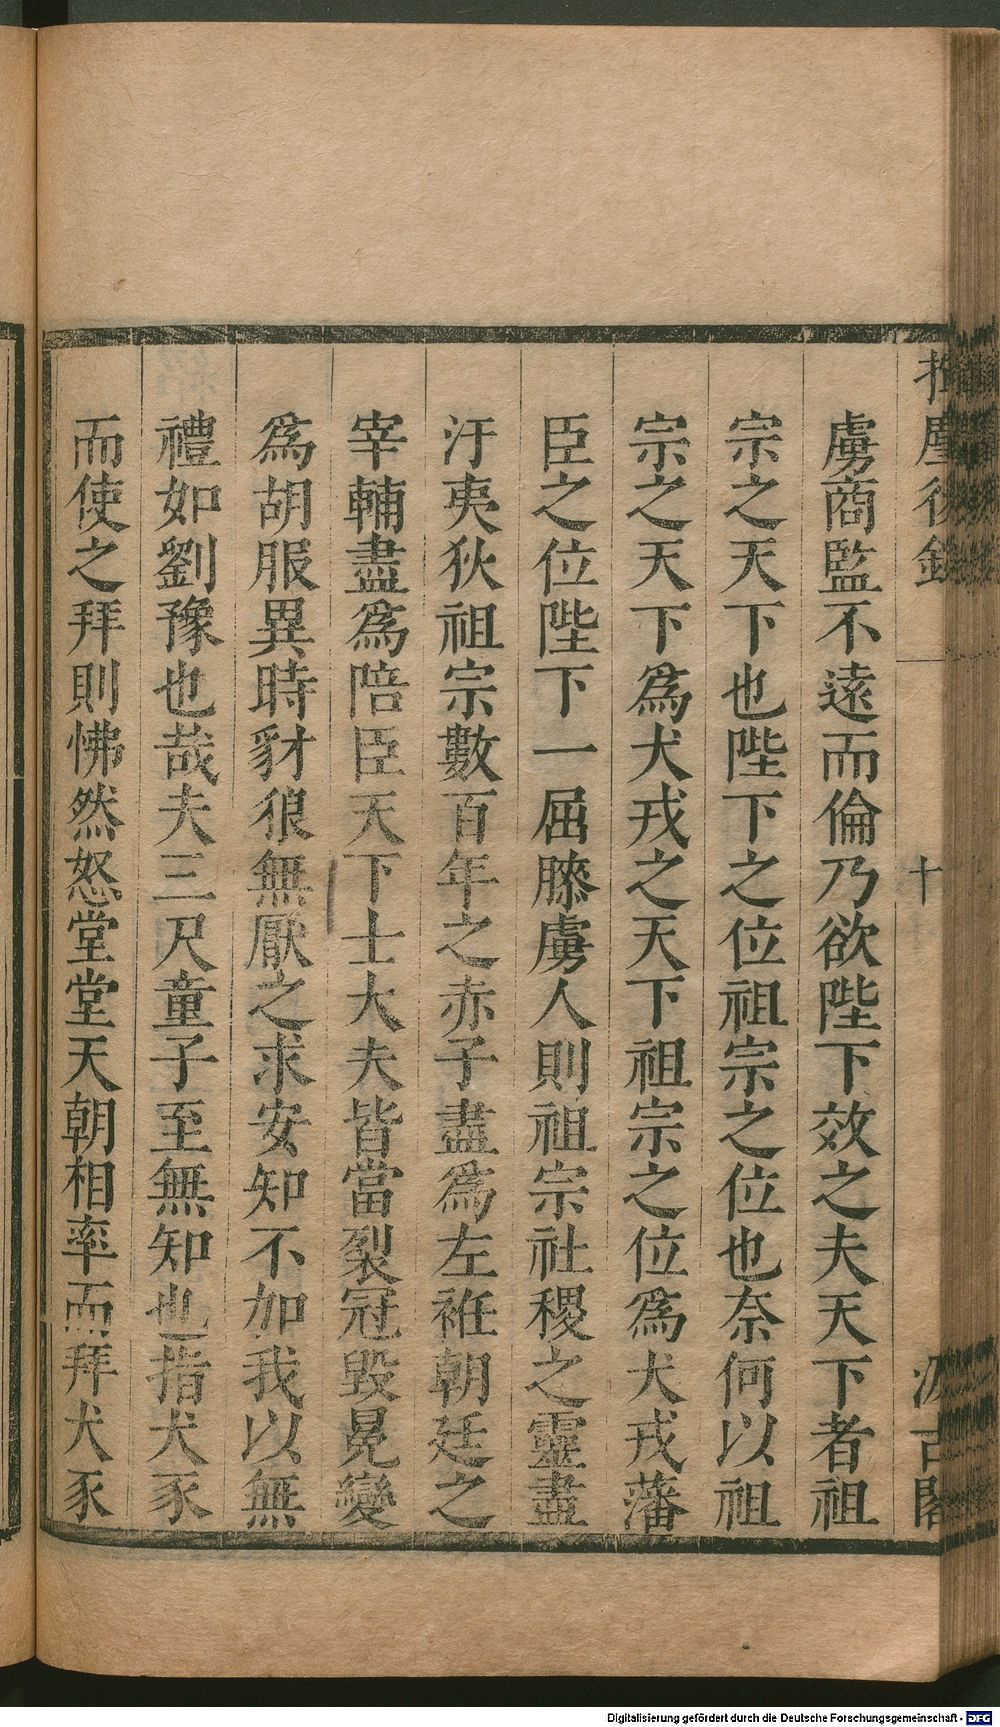 揮麈後錄
十
汲古閣
虜商監不遠而倫乃欲陛下效之夫天下者祖
宗之天下也陛下之位祖宗之位也奈何以祖
宗之天下爲犬戎之天下祖宗之位爲犬戎藩
臣之位陛下一屈膝虜人則祖宗社稷之靈盡
汙夷狄祖宗數百年之赤子盡爲左袵朝廷之
宰輔盡爲陪臣天下士大夫皆當裂冠毀冕變
爲胡服異時豺狼無厭之求安知不加我以無
禮如劉豫也哉夫三尺童子至無知也指犬豕
而使之拜則怫然怒堂堂天朝相率而拜犬豕
Digitalisierung gefördert durch die Deutsche Forschungsgemeinschaft - DFG